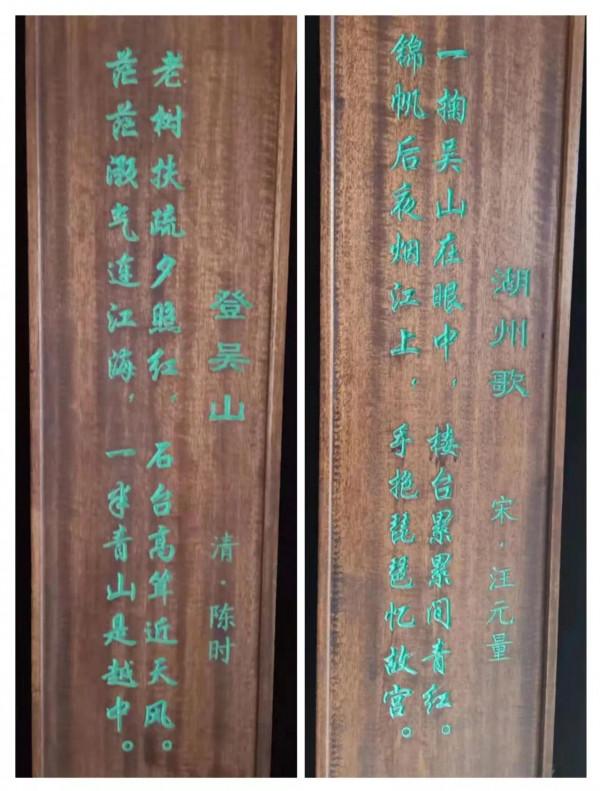 登吴山
清·陈时
老树扶疏夕照红，石台高耸近天风。
茫茫灏气连江海，一半青山是越中。
湖州歌
宋·汪元量
一掬吴山在眼中，楼台累累间青红。
锦帆后夜烟江上，手抱琵琶忆故宫。